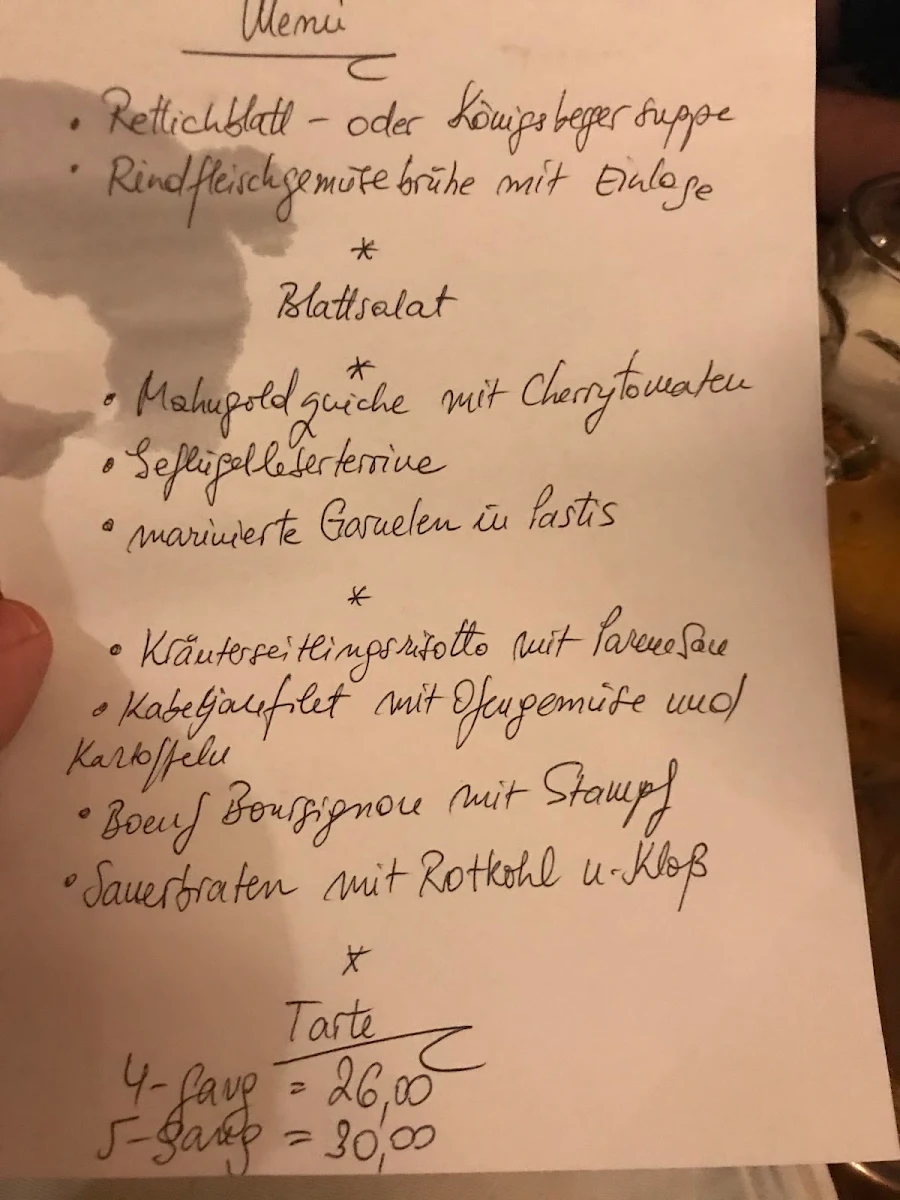 Menü
• Rettichblatt - oder Königsbeger Suppe
• Rindfleischgemüsebrühe mit Einlage
*
Blattsalat
*
• Mahngoldquiche mit Cherrytomaten
• Geflügelleberterrine
• marinierte Garnelen in Pastis
*
• Kräuterseitlingsrisotto mit Parmesan
• Kabeljaufilet mit Ofengemüse und
Kartoffeln
• Boeuf Bourgignon mit Stampf
• Sauerbraten mit Rotkohl u. Kloß
*
Tarte
4-Gang = 26,00
5-Gang = 30,00